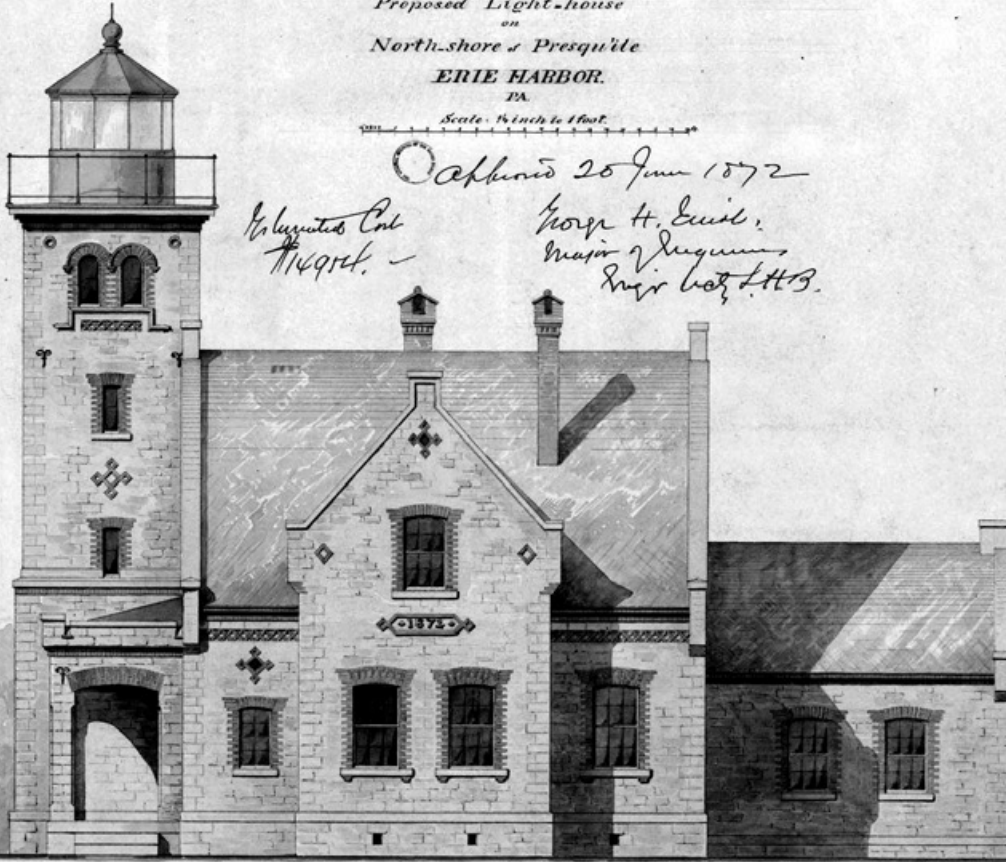 Proposed Light-house
on
North-shore of Presqu'ile
ERIE HARBOR.
PA.
Scale: inch to 1 foot.
Approved 20 June 1872
Estimated Cost
George H.
Major of Engineers
Engr L.H.B.
1872